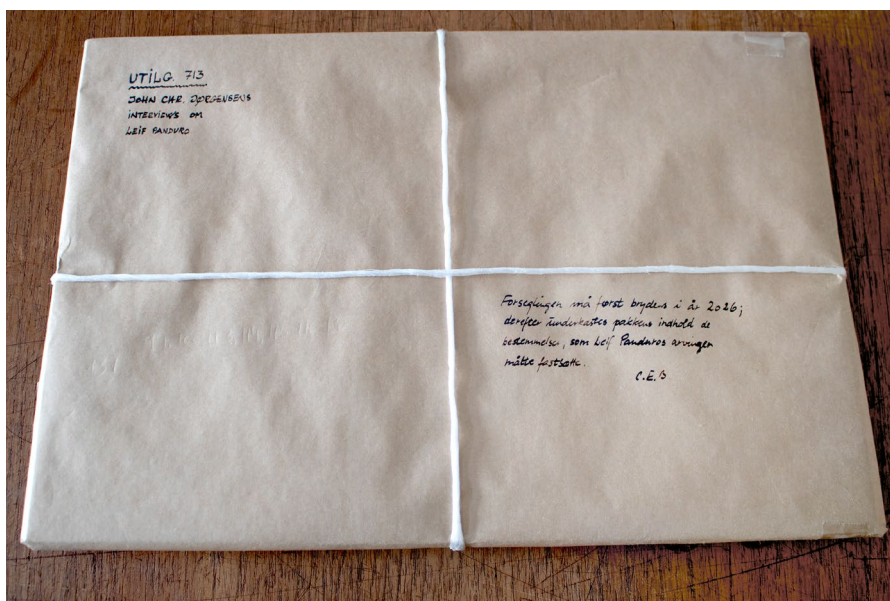 UTILG. 713
JOHN CHR. JØRGENSENS
INTERVIEWS OM
LEIF PANDURO
Forseglingen må først brydes i år 2026;
derefter underkastes pakkens indhold de
bestemmelser, som Leif Panduros arvinger
måtte fastsætte.
C.E.B